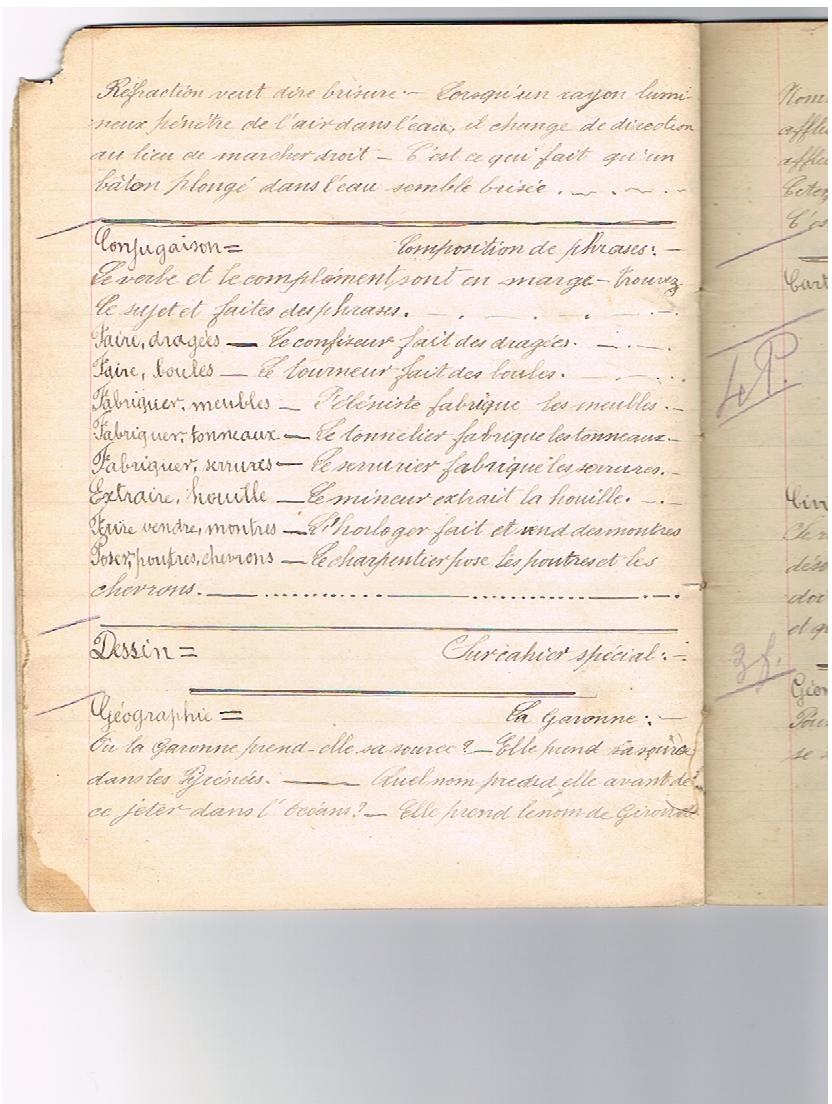 Réfraction veut dire brisure — Lorsqu'un rayon lumi-
neux pénètre de l'air dans l'eau, il change de direction
au lieu de marcher droit — C'est ce qui fait qu'un
bâton plongé dans l'eau semble brisée.
Conjugaison = Composition de phrases: —
Le verbe et le complément sont en marge — Trouvez
le sujet et faites des phrases.
Faire, dragées — Le confiseur fait des dragées.
Faire, boules — Le tourneur fait des boules.
Fabriquer, meubles — l'ébéniste fabrique les meubles. —
Fabriquer, tonneaux — Le tonnelier fabrique les tonneaux. —
Fabriquer, serrures — Le serrurier fabrique les serrures. —
Extraire, houille — Le mineur extrait la houille. —
Faire vendre, montres — L'horloger fait et vend des montres
Poser, poutres, chevrons — Le charpentier pose les poutres et les
chevrons. —
Dessin = Sur cahier spécial: —
Géographie = La Garonne: —
Où la Garonne prend-elle sa source? — Elle prend sa source
dans les Pyrénées. — Quel nom prend elle avant de
ce jeter dans l'océans? — Elle prend le nom de Gironde
Nom
afflu
afflu
C'es
Cart
4 P.
Civi
déso
et q
3 f.
Géo
Pou
se